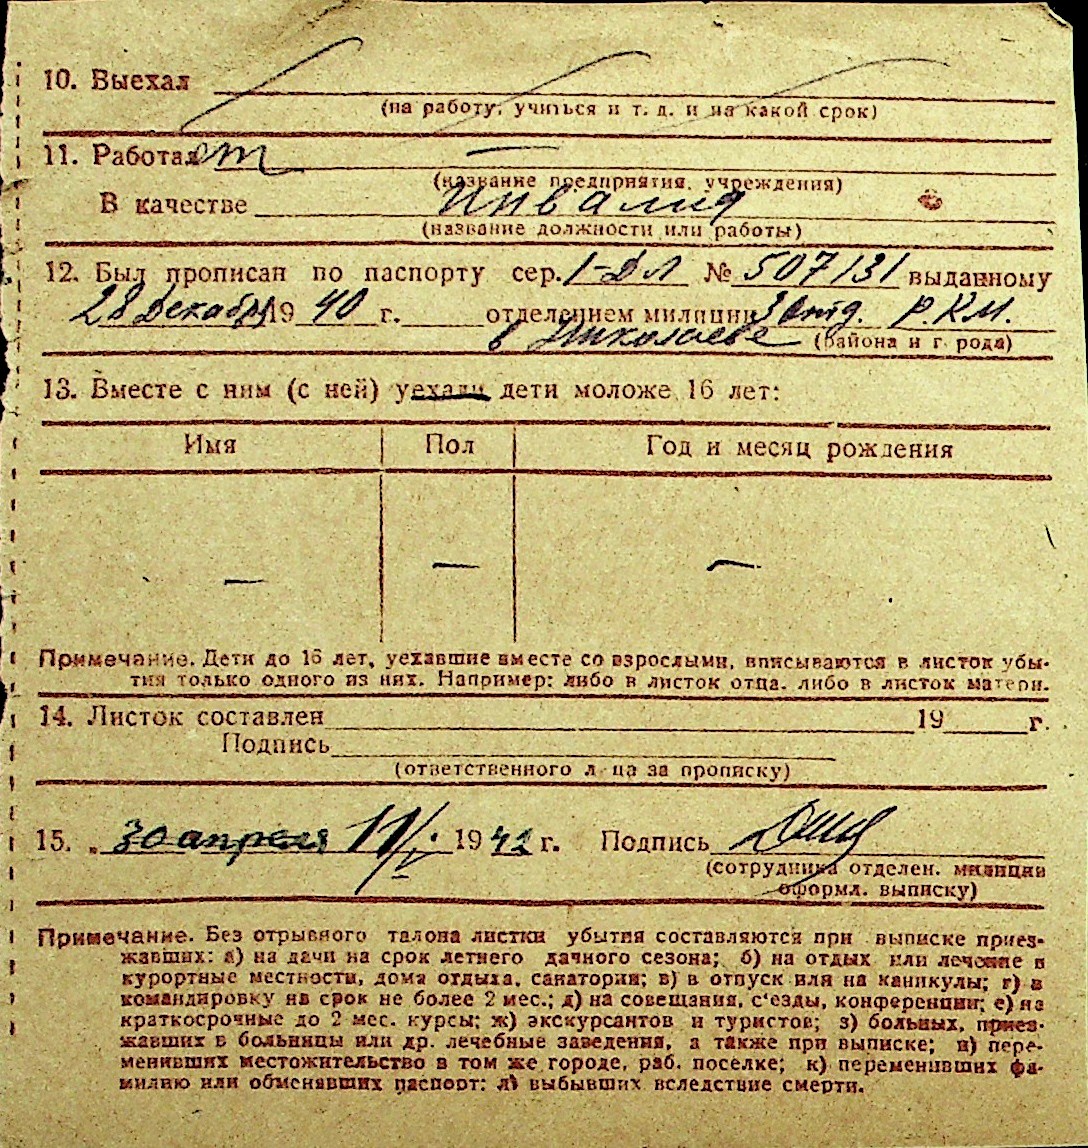 10. Выехал
(на работу, учиться и т. д. и на какой срок)
11. Работал
(название предприятия, учреждения)
В качестве инвалид
(название должности или работы)
12. Был прописан по паспорту сер. 1-ДЛ № 507131 выданному
28 Декабря 1940 г. отделением милиции 3 отд. Р.К.М.
в Николаеве (района и г рода)
13. Вместе с ним (с ней) уехали дети моложе 16 лет:
Имя Пол Год и месяц рождения
— — —
Примечание. Дети до 16 лет, уехавшие вместе со взрослыми, вписываются в листок убы-
тия только одного из них. Например: либо в листок отца, либо в листок матери.
14. Листок составлен 19 г.
Подпись
(ответственного л ца за прописку)
15. „ 30 апреля 11/V. 1942 г. Подпись
(сотрудника отделен. милиции
оформл. выписку)
Примечание. Без отрывного талона листки убытия составляются при выписке приез-
жавших: а) на дачи на срок летнего дачного сезона; б) на отдых или лечение в
курортные местности, дома отдыха, санатории; в) в отпуск или на каникулы; г) в
командировку на срок не более 2 мес.; д) на совещания, с'езды, конференции; е) на
краткосрочные до 2 мес. курсы; ж) экскурсантов и туристов; з) больных, приез-
жавших в больницы или др. лечебные заведения, а также при выписке; и) пере-
менивших местожительство в том же городе, раб. поселке; к) переменивших фа-
милию или обменявших паспорт; л) выбывших вследствие смерти.